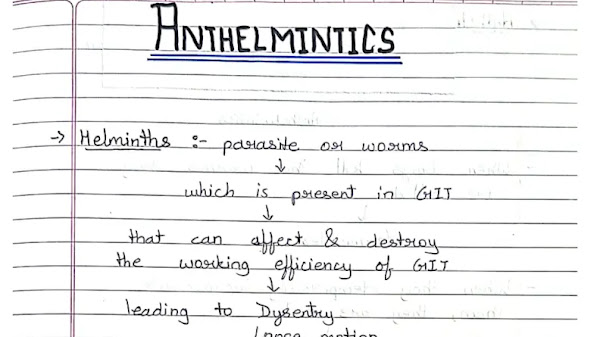 ANTHELMINTICS
→ Helminths :- parasite or worms
↓
which is present in GIT
↓
that can affect & destroy
the working efficiency of GIT
↓
leading to Dysentry